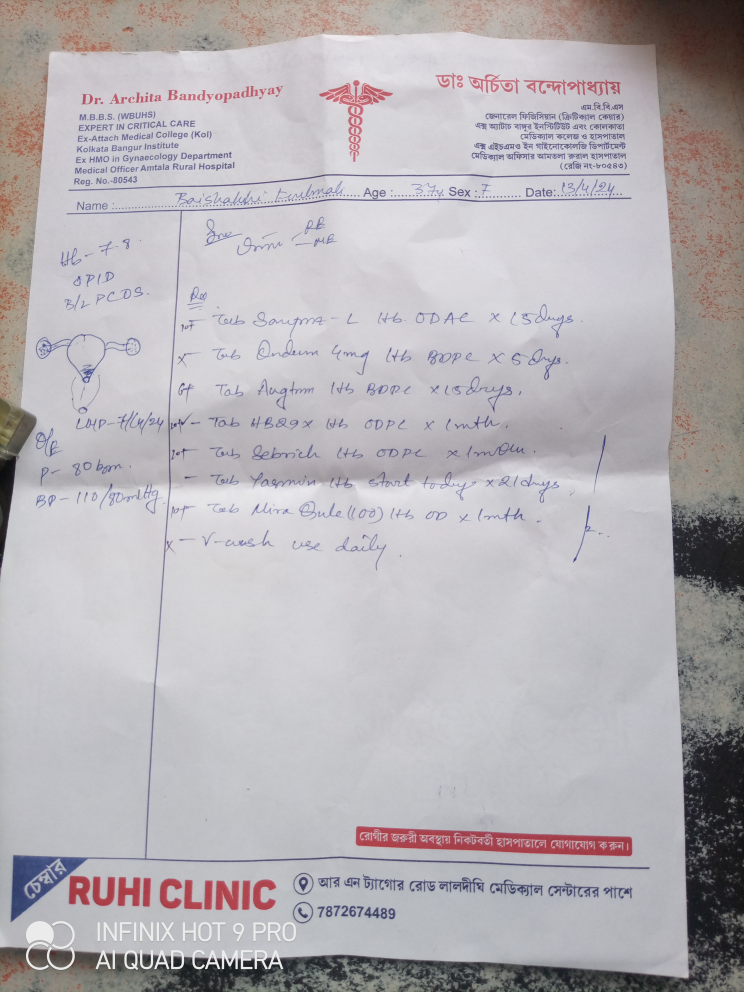 Dr. Archita Bandyopadhyay
M.B.B.S. (WBUHS)
EXPERT IN CRITICAL CARE
Ex-Attach Medical College (Kol)
Kolkata Bangur Institute
Ex HMO in Gynaecology Department
Medical Officer Amtala Rural Hospital
Reg. No.-80543
ডাঃ অর্চিতা বন্দোপাধ্যায়
এম.বি.বি.এস
জেনারেল ফিজিসিয়ান (ক্রিটিক্যাল কেয়ার)
এক্স অ্যাটাচ বাঙ্গুর ইনস্টিটিউট এবং কোলকাতা
মেডিক্যাল কলেজ ও হাসপাতাল
এক্স এইচএমও ইন গাইনোকোলজি ডিপার্টমেন্ট
মেডিক্যাল অফিসার আমতলা রুরাল হাসপাতাল
(রেজি নং-৮০৫৪৩)
Name : Baishakhi Age : 37y Sex : F Date: 13/4/24
Hb - 7.8.
PID
B/L PCOS.
LMP - 7/4/24
O/E
P - 80 bpm.
BP - 110/80 mmHg.
RE
ME
Tab - L 1tb ODAC x 15 days.
x - Tab Ondem 4mg 1tb BDPC x 5 days.
Tab 1tb BDPC x 15 days.
- Tab HB29x 1tb ODPC x 1 mth.
- Tab 1tb ODPC x 1
- Tab Yasmin 1tb start today x 21 days
Tab Mira (100) 1tb OD x 1 mth.
x - V-wash use daily.
রোগীর জরুরী অবস্থায় নিকটবর্তী হাসপাতালে যোগাযোগ করুন।
চেম্বার
RUHI CLINIC
আর এন ট্যাগোর রোড লালদীঘি মেডিক্যাল সেন্টারের পাশে
7872674489
INFINIX HOT 9 PRO
AI QUAD CAMERA